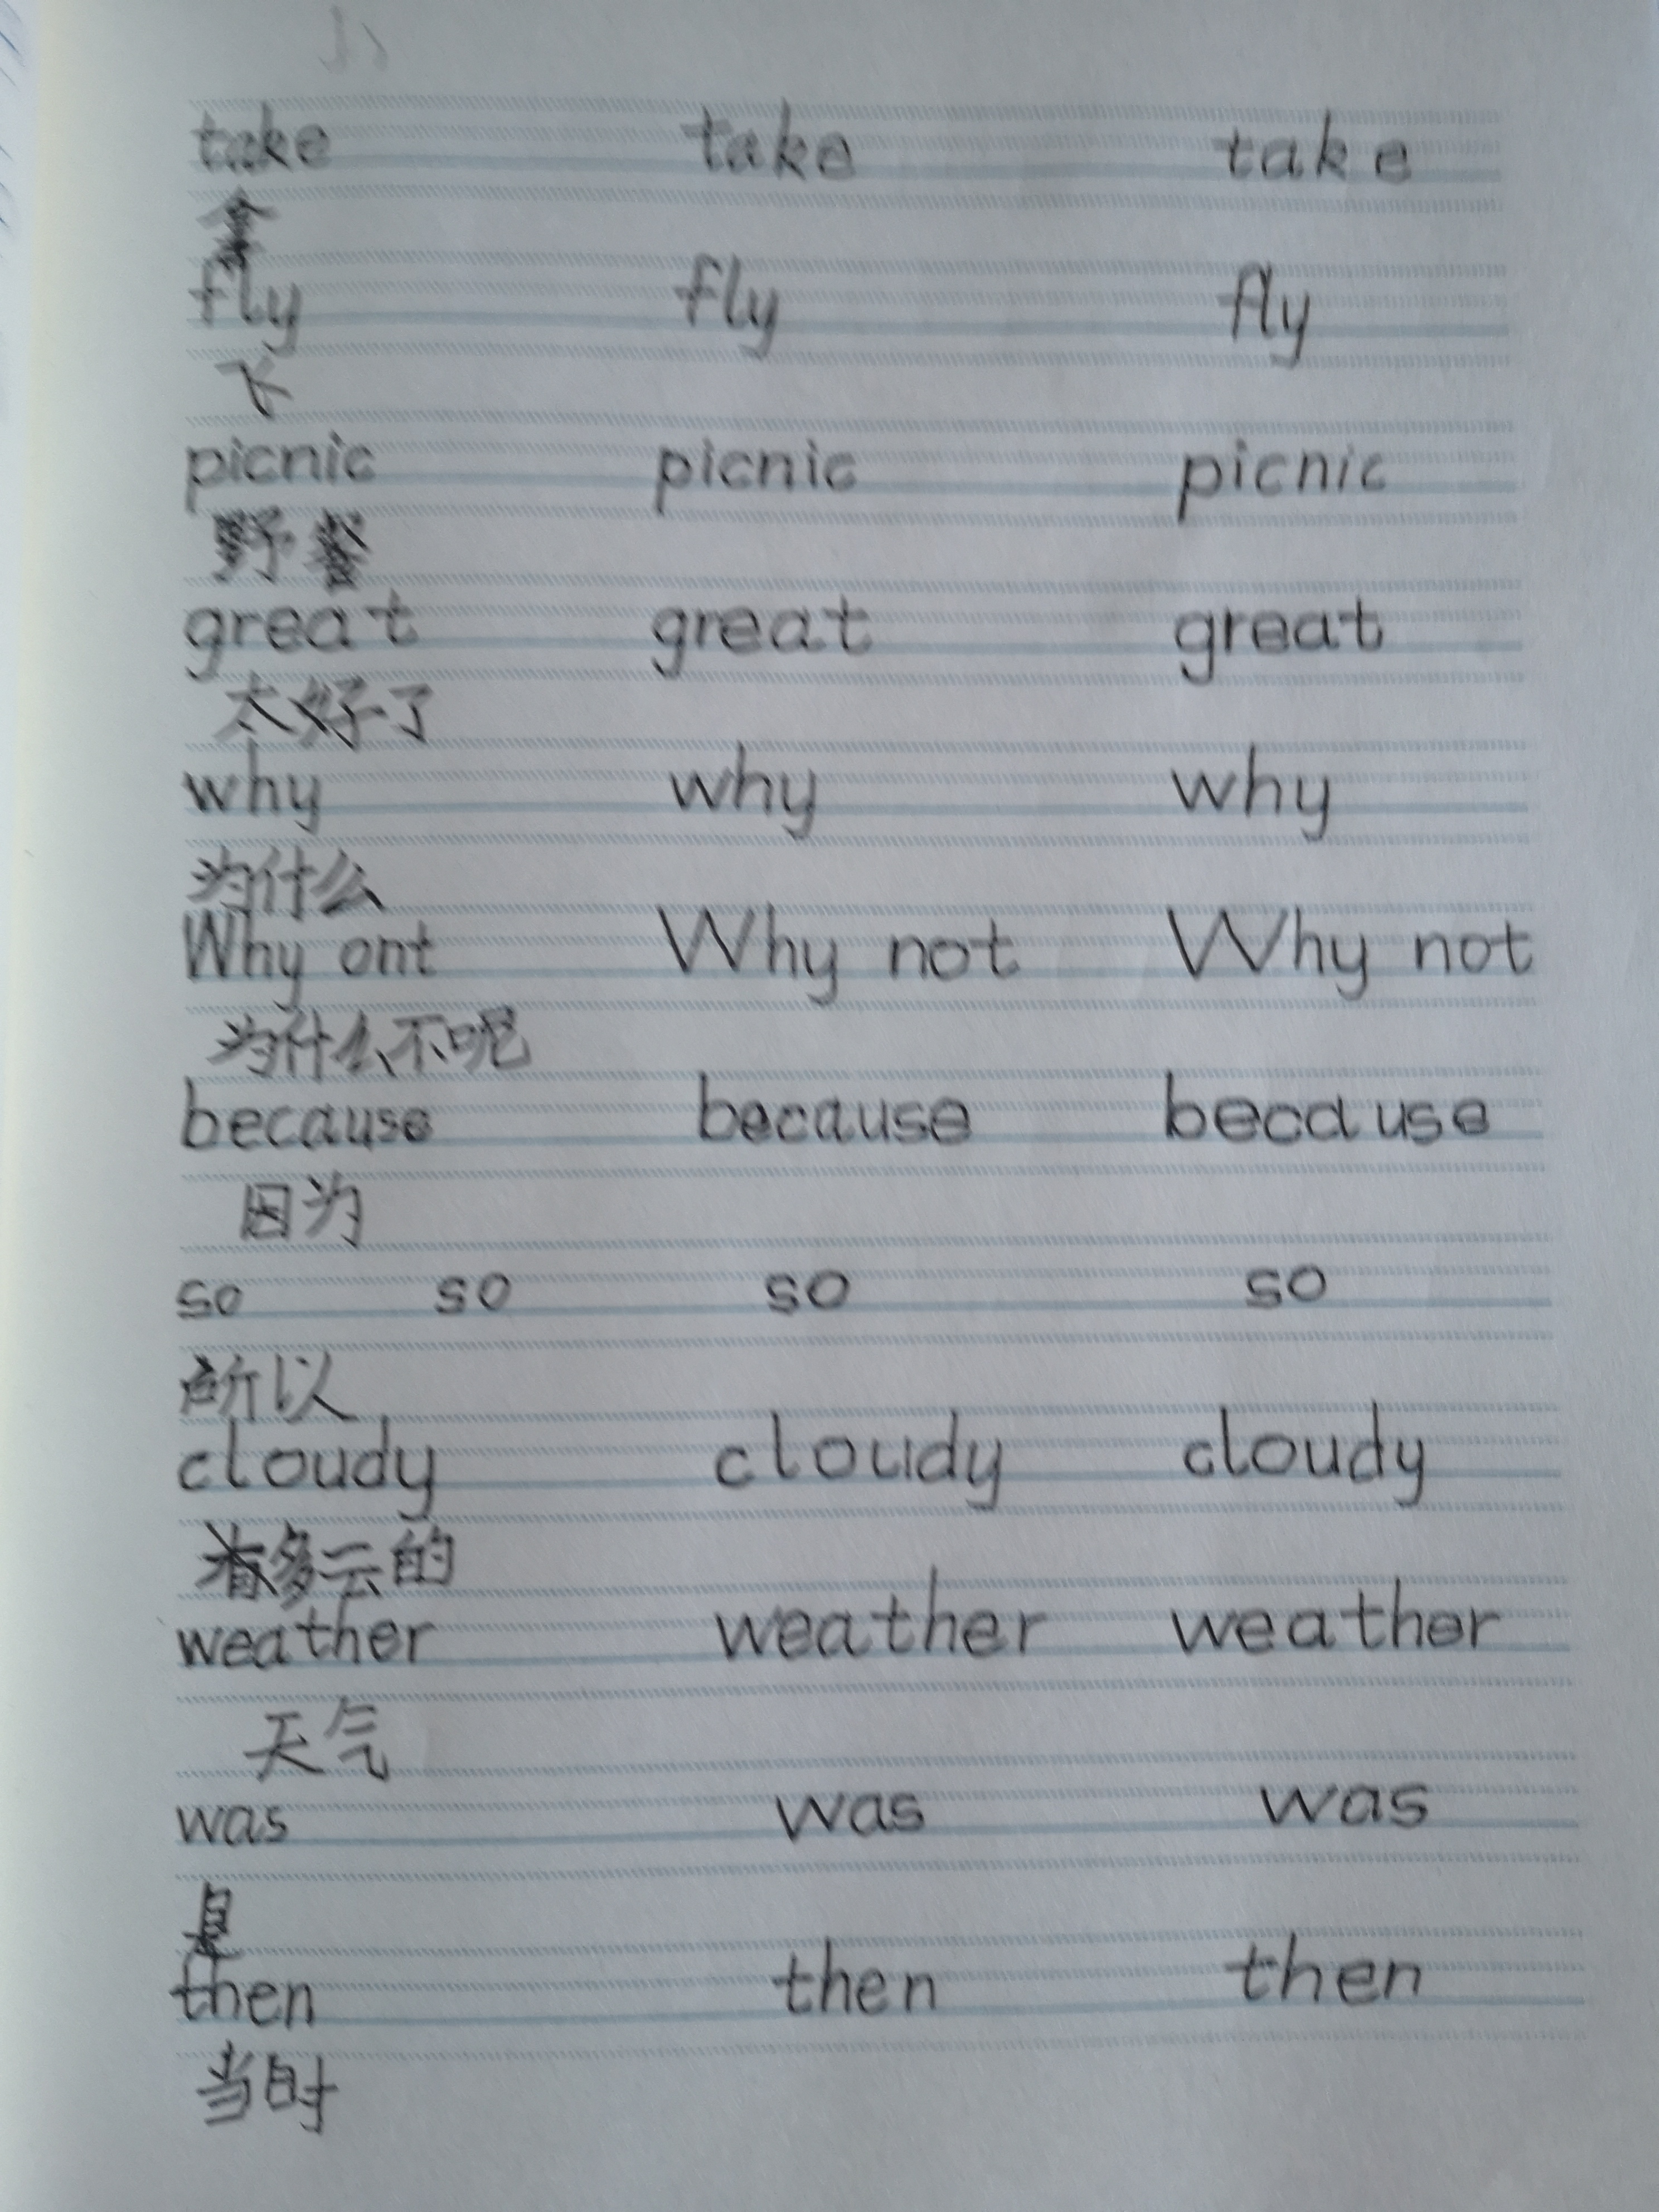 take take take
拿
fly fly fly
飞
picnic picnic picnic
野餐
great great great
太好了
why why why
为什么
Why ont Why not Why not
为什么不呢
because because because
因为
so so so so
所以
cloudy cloudy cloudy
有多云的
weather weather weather
天气
was was was
是
then then then
当时